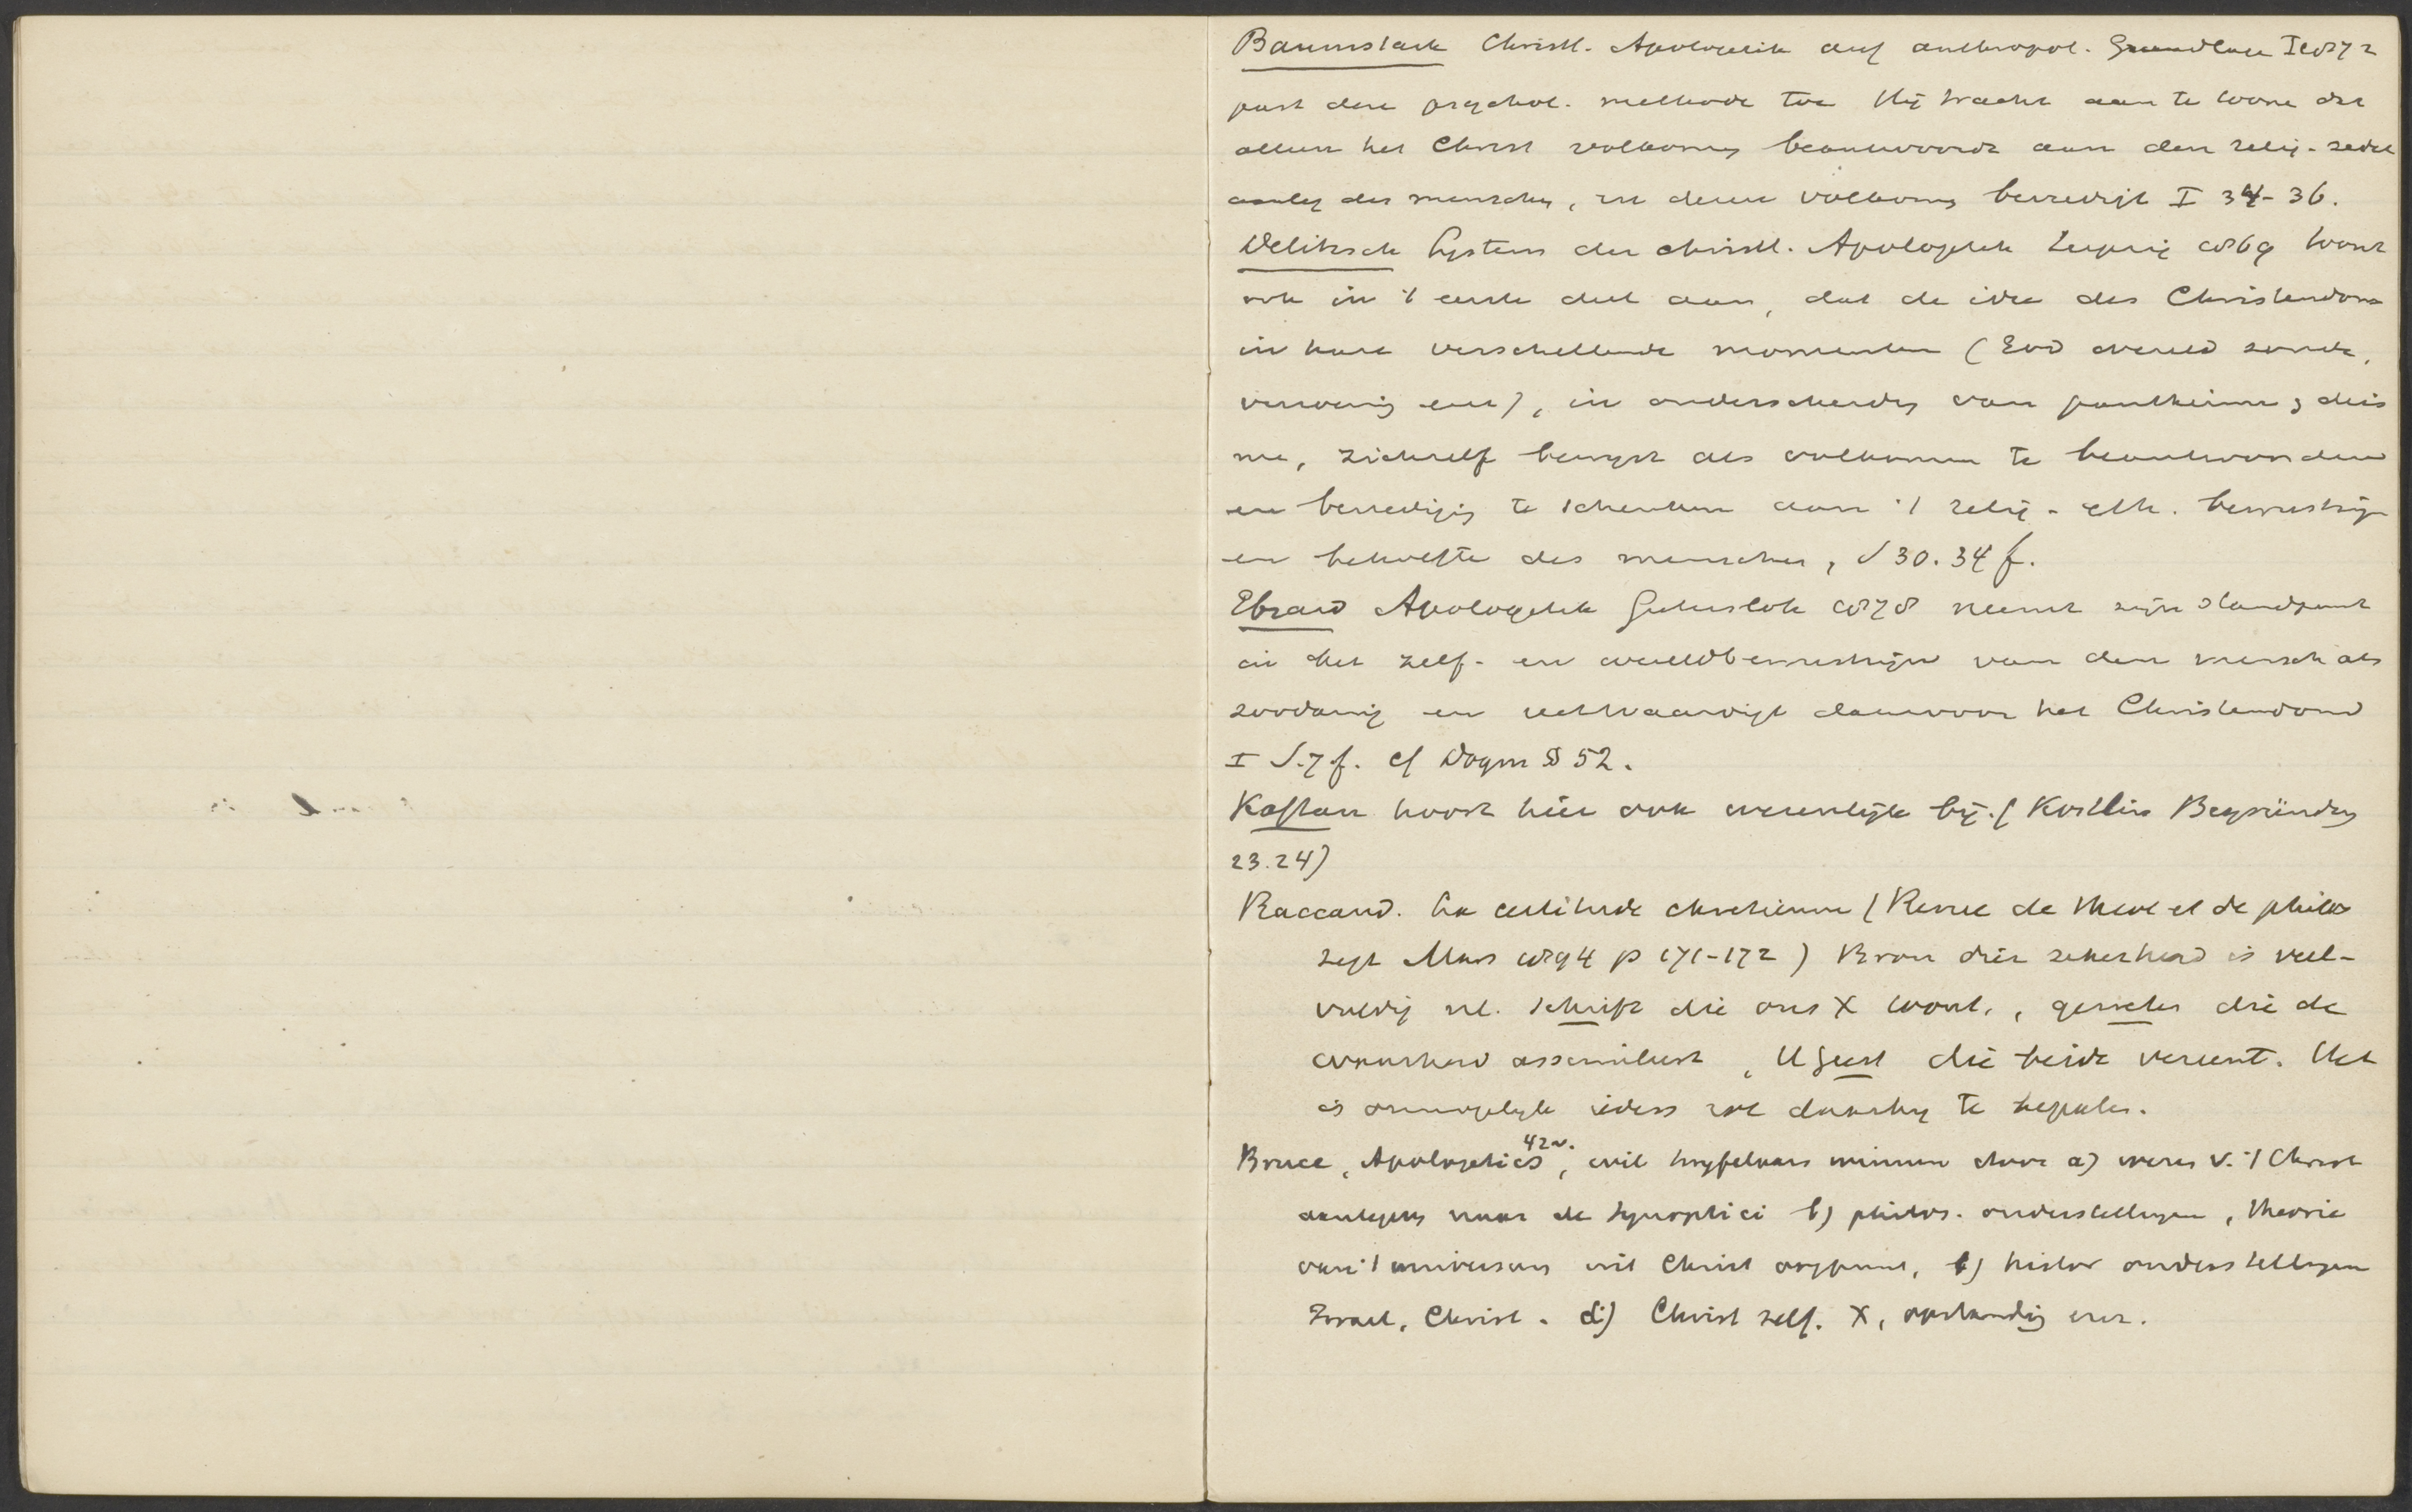 Baumstark Christl. Apologetik auf anthropol. Grundlage I 1872
past deze psychol. methode toe Hij tracht aan te toone dat
alleen het Christ volkomen beantwoordt aan den relig-zedel
aanleg des menschen, en dezen volkomen bevredigt I 34-36.
Delitzsch System der christl. Apologetik Leipzig 1869 toont
ook in 't eerste deel aan, dat de idee des Christendoms
in hare verschillende momenten (God wereld zonde,
verzoening enz), in onderscheiding van pantheisme & deis
me, zichzelf bewijst als volkomen te beantwoorden
en bevrediging te schenken aan 't relig-eth. bewustzijn
en behoefte des menschen, S 30. 34 f.
Ebrard Apologetik Gütersloh 1878 neemt zijn standpunt
in het zelf- en wereldbewustzijn van den mensch als
zoodanig en rechtvaardigt daarvoor het Christendom
I S. 7 f. cf Dogm § 52.
Kaftan hoort hier ook wezenlijk bij. (Köstlin Begründung
23.24)
Raccaud. La certitude chretienne (Revue de theol et de philos
zegt Mars 1894 p 171-172) Bron dier zekerheid is veel-
vuldig nl. Schrift die ons X toont, geweten die de
waarheid assimileert, H Geest die beide vereent. Het
is onmogelijk ieders rol daarbij te bepalen.
Bruce, Apologetics 42v., wil twijfelaars winnen door a) wezen v. 't Christ
aantoonen naar de Synoptici b) philos. onderstellingen, theorie
van 't universum uit Christ oogpunt, c) histor onderstellingen
Israel, Christ. d) Christ zelf. X, opstanding enz.